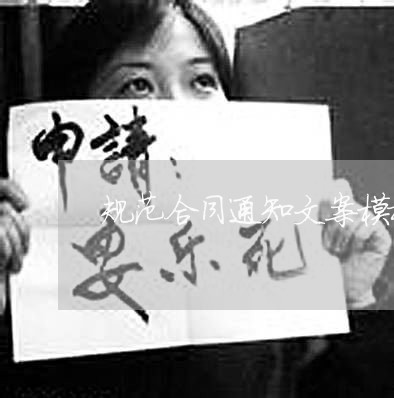 申請：
规范合同通知文案模
安乐死